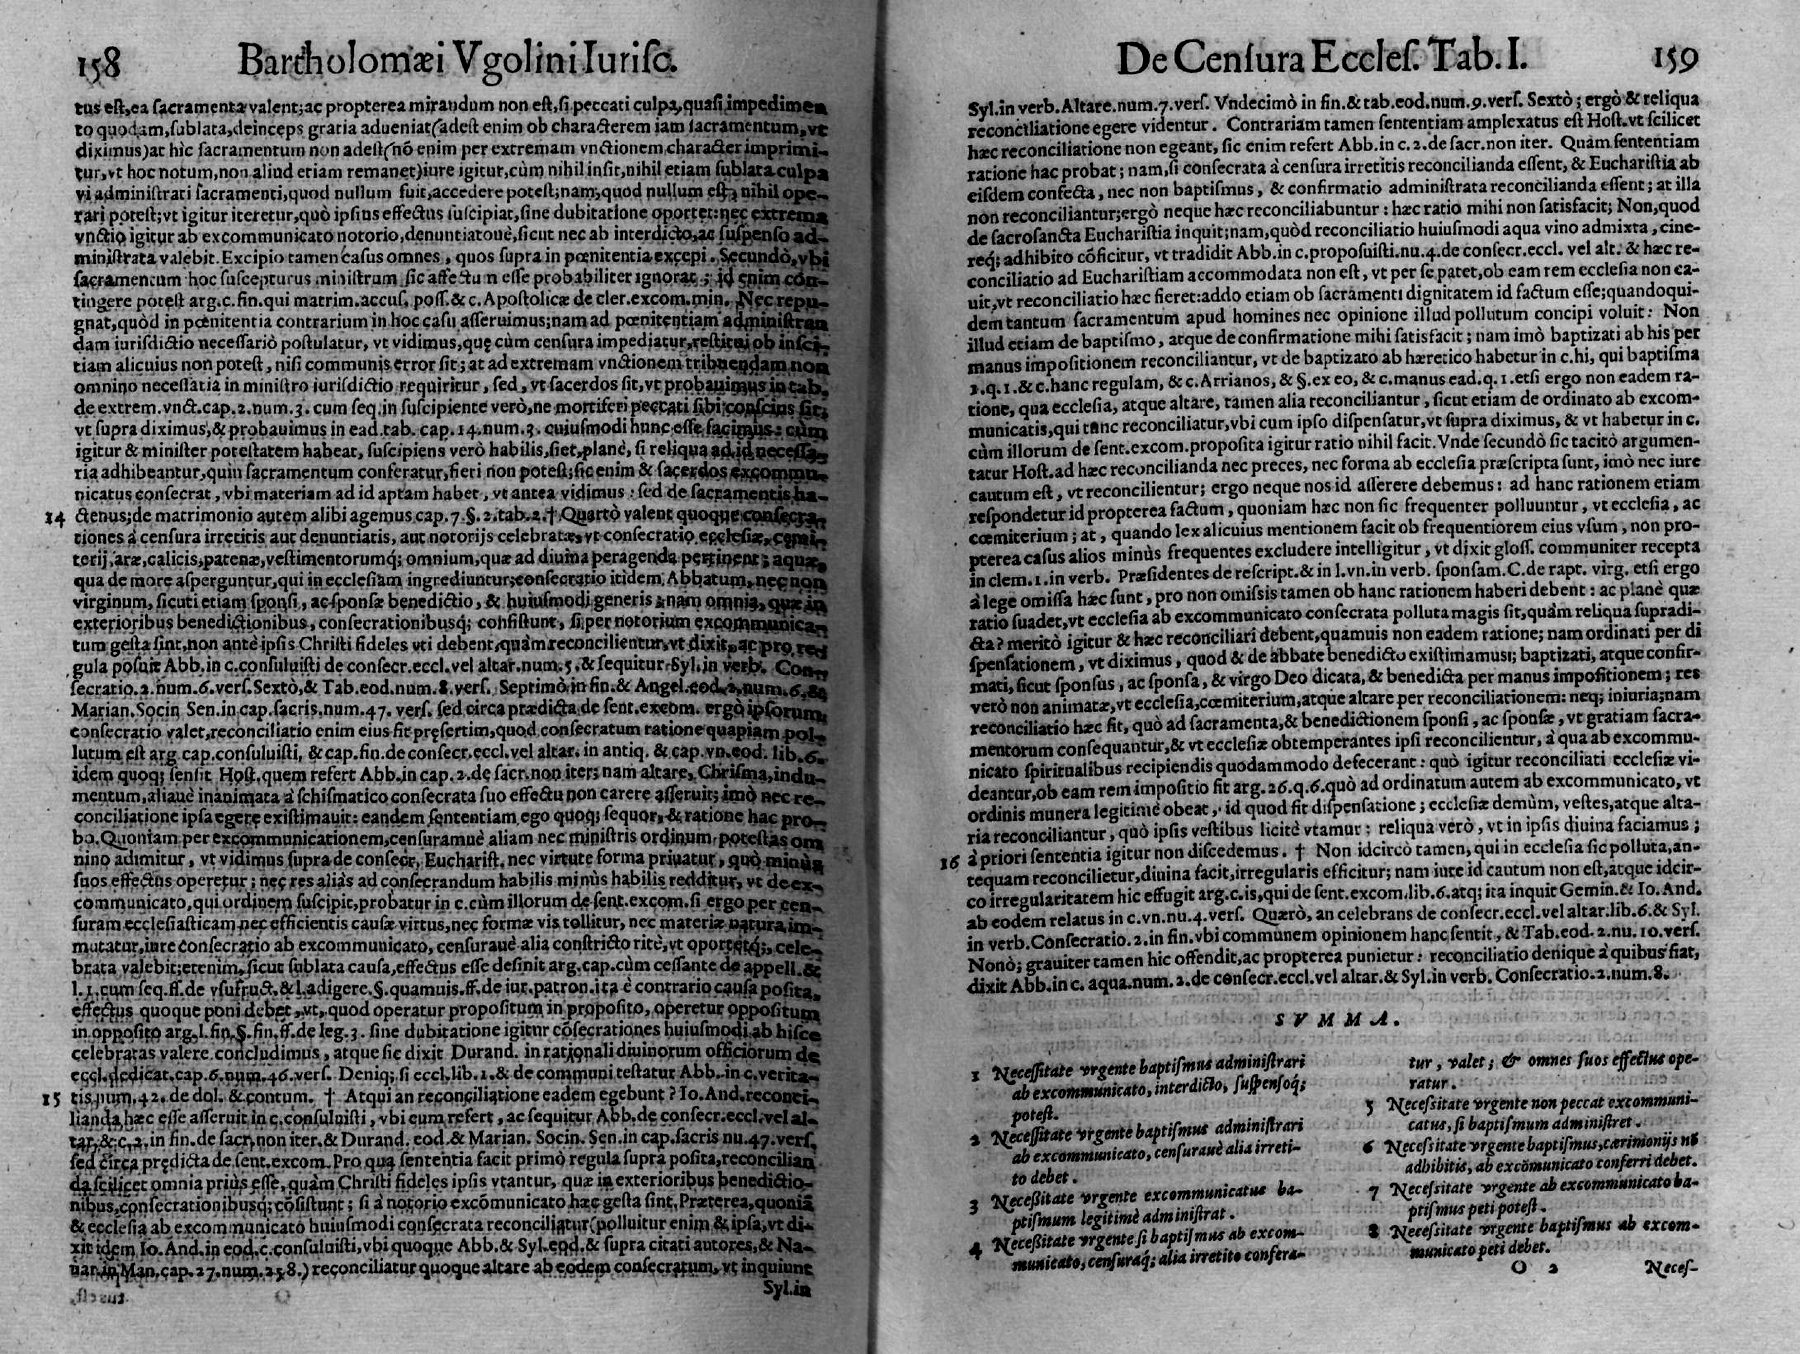 158 Bartholomæi Vgolini Iurisc.
tus est, ea sacramenta valent; ac propterea mirandum non est, si peccati culpa, quasi impedimen
to quodam, sublata, deinceps gratia adueniat (adest enim ob characterem iam sacramentum, vt
diximus) at hic sacramentum non adest (nõ enim per extremam vnctionem character imprimi-
tur, vt hoc notum, non aliud etiam remanet) iure igitur, cùm nihil insit, nihil etiam sublata culpa
vi administrati sacramenti, quod nullum fuit, accedere potest; nam, quod nullum est, nihil ope-
rari potest; vt igitur iteretur, quò ipsius effectus suscipiat, sine dubitatione oportet: nec extrema
vnctio igitur ab excommunicato notorio, denuntiatouè, sicut nec ab interdicto, ac suspenso ad-
ministrata valebit. Excipio tamen casus omnes, quos supra in pœnitentia excepi. Secundò, vbi
sacramentum hoc suscepturus ministrum sic affectum esse probabiliter ignorat; id enim con-
tingere potest arg. c. fin. qui matrim. accus. poss. & c. Apostolicæ de cler. excom. min. Nec repu-
gnat, quòd in pœnitentia contrarium in hoc casu asseruimus; nam ad pœnitentiam administran
dam iurisdictio necessariò postulatur, vt vidimus, quę cùm censura impediatur, restitui ob insci-
tiam alicuius non potest, nisi communis error sit; at ad extremam vnctionem tribuendam non
omnino necessatia in ministro iurisdictio requiritur, sed, vt sacerdos sit, vt probauimus in tab.
de extrem. vnct. cap. 2. num. 3. cum seq. in suscipiente verò, ne mortiferi peccati sibi conscius sit;
vt supra diximus, & probauimus in ead. tab. cap. 14. num. 3. cuiusmodi hunc esse facimus: cùm
igitur & minister potestatem habeat, suscipiens verò habilis, siet, planè, si reliqua ad id necessa-
ria adhibeantur, quin sacramentum conferatur, fieri non potest; sic enim & sacerdos excommu-
nicatus consecrat, vbi materiam ad id aptam habet, vt antea vidimus: sed de sacramentis ha-
14 ctenus; de matrimonio autem alibi agemus cap. 7. §. 2. tab. 2. † Quartò valent quoque consecra-
tiones à censura irretitis aut denuntiatis, aut notorijs celebratæ, vt consecratio ecclesiæ, cœmi-
terij, aræ, calicis, patenæ, vestimentorumq; omnium, quæ ad diuina peragenda pertinent; aquæ,
qua de more asperguntur, qui in ecclesiam ingrediuntur; consecratio itidem Abbatum, nec non
virginum, sicuti etiam sponsi, ac sponsæ benedictio, & huiusmodi generis: nam omnia, quæ in
exterioribus benedictionibus, consecrationibusq; consistunt, si per notorium excommunica-
tum gesta sint, non antè ipsis Christi fideles vti debent, quàm reconcilientur, vt dixit, ac pro re-
gula posuit Abb. in c. consuluisti de consecr. eccl. vel altar. num. 5. & sequitur Syl. in verb. Con-
secratio. 2. num. 6. vers. Sextò, & Tab. eod. num. 8. vers. Septimò in fin. & Angel. eod. 2. num. 6. &
Marian. Socin Sen. in cap. sacris. num. 47. vers. sed circa prædicta de sent. excom. ergò ipsorum
consecratio valet, reconciliatio enim eius fit pręsertim, quod consecratum ratione quapiam pol-
lutum est arg cap. consuluisti, & cap. fin. de consecr. eccl. vel altar. in antiq. & cap. vn. eod. lib. 6.
idem quoq; sensit Host. quem refert Abb. in cap. 2. de sacr. non iter; nam altare, Chrisma, indu-
mentum, aliauè inanimata à schismatico consecrata suo effectu non carere asseruit; imò nec re-
conciliatione ipsa egere existimauit: eandem sententiam ego quoq; sequor, & ratione hac pro-
bo. Quoniam per excommunicationem, censuramuè aliam nec ministris ordinum potestas om
nino adimitur, vt vidimus supra de consecr. Eucharist. nec virtute forma priuatur, quò minùs
suos effectus operetur; nec res aliàs ad consecrandum habilis minùs habilis redditur, vt de ex-
communicato, qui ordinem suscipit, probatur in c. cùm illorum de sent. excom. si ergo per cen-
suram ecclesiasticam nec efficientis causæ virtus, nec formæ vis tollitur, nec materiæ natura im-
mutatur, iure consecratio ab excommunicato, censurauè alia constricto ritè, vt oportetq;, cele-
brata valebit; etenim, sicut sublata causa, effectus esse desinit arg. cap. cùm cessante de appell. &
l. 1. cum seq. ff. de vsufruct. & l. adigere. §. quamuis. ff. de iur. patron. ita è contrario causa posita,
effectus quoque poni debet, vt, quod operatur propositum in proposito, operetur oppositum
in opposito arg. l. fin. §. fin. ff. de leg. 3. sine dubitatione igitur cõsecrationes huiusmodi ab hisce
celebratas valere concludimus, atque sic dixit Durand. in rationali diuinorum officiorum de
eccl. dedicat. cap. 6. num. 46. vers. Deniq; si eccl. lib. 1. & de communi testatur Abb. in c. verita-
15 tis num. 42. de dol. & contum. † Atqui an reconciliatione eadem egebunt? Io. And. reconci-
lianda hæc esse asseruit in c. consuluisti, vbi eum refert, ac sequitur Abb. de consecr. eccl. vel al-
tar. & c. 2. in fin. de sacr. non iter. & Durand. eod. & Marian. Socin. Sen. in cap. sacris nu. 47. vers.
sed circa prędicta de sent. excom. Pro qua sententia facit primò regula supra posita, reconcilian
da scilicet omnia priùs esse, quàm Christi fideles ipsis vtantur, quæ in exterioribus benedictio-
nibus, consecrationibusq; cõsistunt; si à notorio excõmunicato hæc gesta sint. Præterea, quoniã
& ecclesia ab excommunicato huiusmodi consecrata reconciliatur (polluitur enim & ipsa, vt di-
xit idem Io. And. in eod. c. consuluisti, vbi quoque Abb. & Syl. eod. & supra citati autores, & Na-
uar. in Man. cap. 27. num. 258.) reconciliatur quoque altare ab eodem consecratum, vt inquiunt
Syl. in
De Censura Eccles. Tab. I. 159
Syl. in verb. Altare. num. 7. vers. Vndecimò in fin. & tab. eod. num. 9. vers. Sextò; ergò & reliqua
reconciliatione egere videntur. Contrariam tamen sententiam amplexatus est Host. vt scilicet
hæc reconciliatione non egeant, sic enim refert Abb. in c. 2. de sacr. non iter. Quàm sententiam
ratione hac probat; nam, si consecrata à censura irretitis reconcilianda essent, & Eucharistia ab
eisdem confecta, nec non baptismus, & confirmatio administrata reconcilianda essent; at illa
non reconciliantur; ergò neque hæc reconciliabuntur: hæc ratio mihi non satisfacit; Non, quod
de sacrosancta Eucharistia inquit; nam, quòd reconciliatio huiusmodi aqua vino admixta, cine-
req; adhibito cõficitur, vt tradidit Abb. in c. proposuisti. nu. 4. de consecr. eccl. vel alt. & hæc re-
conciliatio ad Eucharistiam accommodata non est, vt per se patet, ob eam rem ecclesia non ca-
uit, vt reconciliatio hæc fieret: addo etiam ob sacramenti dignitatem id factum esse; quandoqui-
dem tantum sacramentum apud homines nec opinione illud pollutum concipi voluit: Non
illud etiam de baptismo, atque de confirmatione mihi satisfacit; nam imò baptizati ab his per
manus impositionem reconciliantur, vt de baptizato ab hæretico habetur in c. hi, qui baptisma
1. q. 1. & c. hanc regulam, & c. Arrianos, & §. ex eo, & c. manus ead. q. 1. etsi ergo non eadem ra-
tione, qua ecclesia, atque altare, tamen alia reconciliantur, sicut etiam de ordinato ab excom-
municatis, qui tunc reconciliatur, vbi cum ipso dispensatur, vt supra diximus, & vt habetur in c.
cùm illorum de sent. excom. proposita igitur ratio nihil facit. Vnde secundò sic tacitò argumen-
tatur Host. ad hæc reconcilianda nec preces, nec forma ab ecclesia præscripta sunt, imò nec iure
cautum est, vt reconcilientur; ergo neque nos id asserere debemus: ad hanc rationem etiam
respondetur id propterea factum, quoniam hæc non sic frequenter polluuntur, vt ecclesia, ac
cœmiterium; at, quando lex alicuius mentionem facit ob frequentiorem eius vsum, non pro-
pterea casus alios minùs frequentes excludere intelligitur, vt dixit gloss. communiter recepta
in clem. 1. in verb. Præsidentes de rescript. & in l. vn. in verb. sponsam. C. de rapt. virg. etsi ergo
à lege omissa hæc sunt, pro non omissis tamen ob hanc rationem haberi debent: ac planè quæ
ratio suadet, vt ecclesia ab excommunicato consecrata polluta magis sit, quàm reliqua supradi-
cta? meritò igitur & hæc reconciliari debent, quamuis non eadem ratione; nam ordinati per di
spensationem, vt diximus, quod & de abbate benedicto existimamus; baptizati, atque confir-
mati, sicut sponsus, ac sponsa, & virgo Deo dicata, & benedicta per manus impositionem; res
verò non animatæ, vt ecclesia, cœmiterium, atque altare per reconciliationem: neq; iniuria; nam
reconciliatio hæc fit, quò ad sacramenta, & benedictionem sponsi, ac sponsæ, vt gratiam sacra-
mentorum consequantur, & vt ecclesiæ obtemperantes ipsi reconcilientur, à qua ab excommu-
nicato spiritualibus recipiendis quodammodo defecerant: quò igitur reconciliati ecclesiæ vi-
deantur, ob eam rem impositio fit arg. 26. q. 6. quò ad ordinatum autem ab excommunicato, vt
ordinis munera legitimè obeat, id quod fit dispensatione; ecclesiæ demùm, vestes, atque alta-
ria reconciliantur, quò ipsis vestibus licitè vtamur: reliqua verò, vt in ipsis diuina faciamus;
16 à priori sententia igitur non discedemus. † Non idcircò tamen, qui in ecclesia sic polluta, an-
tequam reconcilietur, diuina facit, irregularis efficitur; nam iure id cautum non est, atque idcir-
co irregularitatem hic effugit arg. c. is, qui de sent. excom. lib. 6. atq; ita inquit Gemin. & Io. And.
ab eodem relatus in c. vn. nu. 4. vers. Quærò, an celebrans de consecr. eccl. vel altar. lib. 6. & Syl.
in verb. Consecratio. 2. in fin. vbi communem opinionem hanc sentit, & Tab. eod. 2. nu. 10. vers.
Nonò; grauiter tamen hic offendit, ac propterea punietur: reconciliatio denique à quibus fiat,
dixit Abb. in c. aqua. num. 2. de consecr. eccl. vel altar. & Syl. in verb. Consecratio. 2. num. 8.
SVMMA.
1 Necessitate vrgente baptismus administrari
ab excommunicato, interdicto, suspensoq;
potest.
2 Necessitate vrgente baptismus administrari
ab excommunicato, censurauè alia irreti-
to debet.
3 Necessitate vrgente excommunicatus ba-
ptismum legitimè administrat.
4 Necessitate vrgente si baptismus ab excom-
municato, censuraq; alia irretito confera-
tur, valet; & omnes suos effectus ope-
ratur.
5 Necessitate vrgente non peccat excommuni-
catus, si baptismum administret.
6 Necessitate vrgente baptismus, cærimonijs nõ
adhibitis, ab excõmunicato conferri debet.
7 Necessitate vrgente ab excommunicato ba-
ptismus peti potest.
8 Necessitate vrgente baptismus ab excom-
municato peti debet.
O 2 Neces-